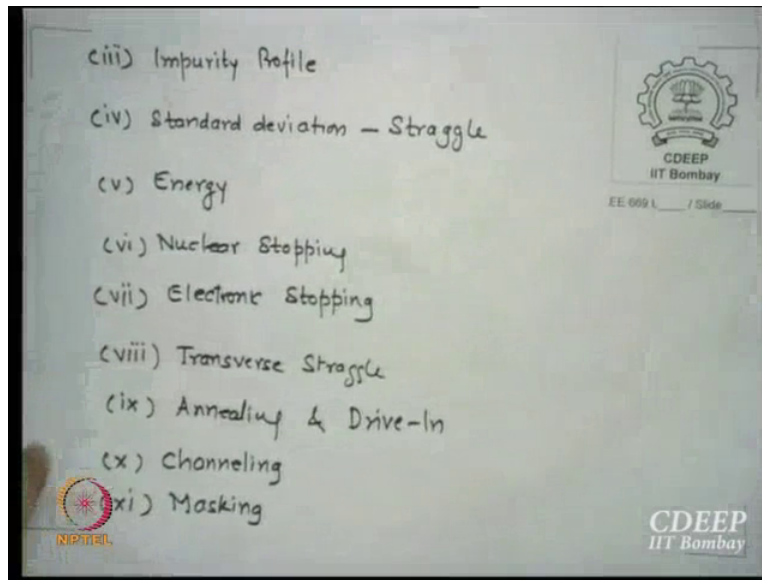 (iii) Impurity Profile
(iv) Standard deviation – Straggle
(v) Energy
(vi) Nuclear Stopping
(vii) Electronic Stopping
(viii) Transverse Straggle
(ix) Annealing & Drive-In
(x) Channeling
(xi) Masking
CDEEP
IIT Bombay
EE 669 L____ / Slide____
NPTEL
CDEEP
IIT Bombay